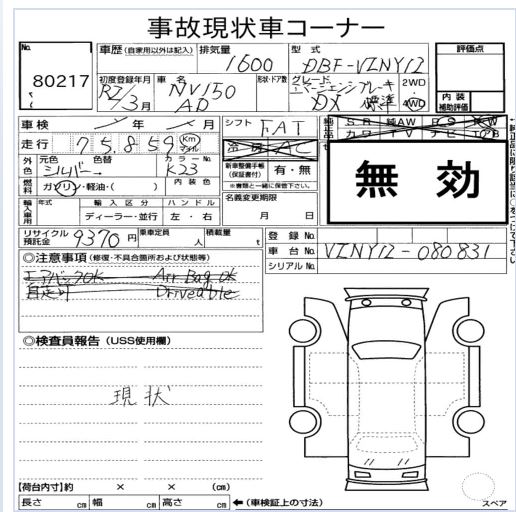 事故現状車コーナー
No. 80217
車歴(自家用以外は記入) 排気量 1600 型式 DBF-VZNY12 評価点
初度登録年月 車名 NV150 AD 形状・ドア数 グレード エマージェンシーブレーキ DX 2WD 4WD 内装補助評価
車検 年 月 シフト FAT 純正品 SR 純AW PS PW
走行 75,859 Km マイル 冷房 AC カワ TV ナビ
外色 元色 シルバー 色替 カラーNo. K23 新車整備手帳(保証書付) 有・無
無効
燃料 ガソリン・軽油・( ) 内装色 ※書類と一緒に保管下さい。
輸入車用 年式 輸入区分 ハンドル 名義変更期限
ディーラー・並行 左・右 月 日
リサイクル預託金 9370円 乗車定員 人 積載量 t 登録No.
◎注意事項(修復・不具合箇所および状態等) 車台No. VZNY12-080831
エアバックOK Air Bag OK シリアルNo.
自走可 Driveable
◎検査員報告(USS使用欄)
現状
【荷台内寸】約 × × (cm)
長さ cm 幅 cm 高さ cm ←(車検証上の寸法) スペア